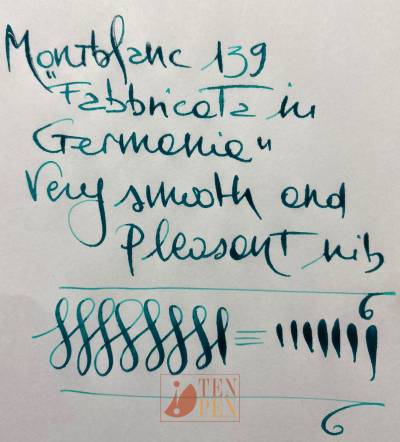 Montblanc 139
"Fabbricata in
Germania"
Very smooth and
pleasant nib
6
6
TEN
PEN